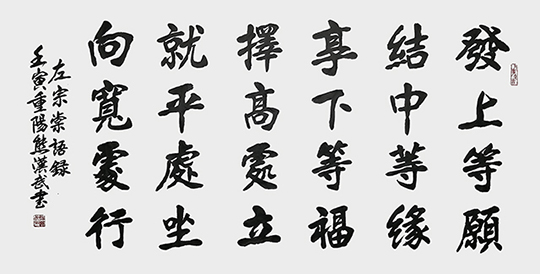 發上等願
結中等緣
享下等福
擇高處立
就平處坐
向寬處行
左宗棠語録
壬寅重陽熊漢武書